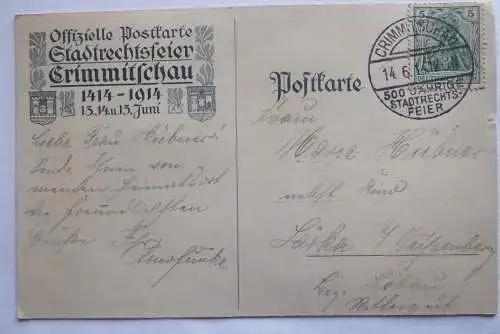 Offizielle Postkarte
Stadtrechtsfeier
Crimmitschau
1414-1914
13. 14. u. 15. Juni
Liebe Frau Hübner!
Sende Ihnen von
meinem Heimatsort
die freundlichsten
Grüßen Ihr
Postkarte
CRIMMITSCHAU
14.6.
500 JÄHRIGE
STADTRECHTS-
FEIER
5 5
Frau
Marie Hübner
nebst Kind
Bez. Löbau
Rittergut